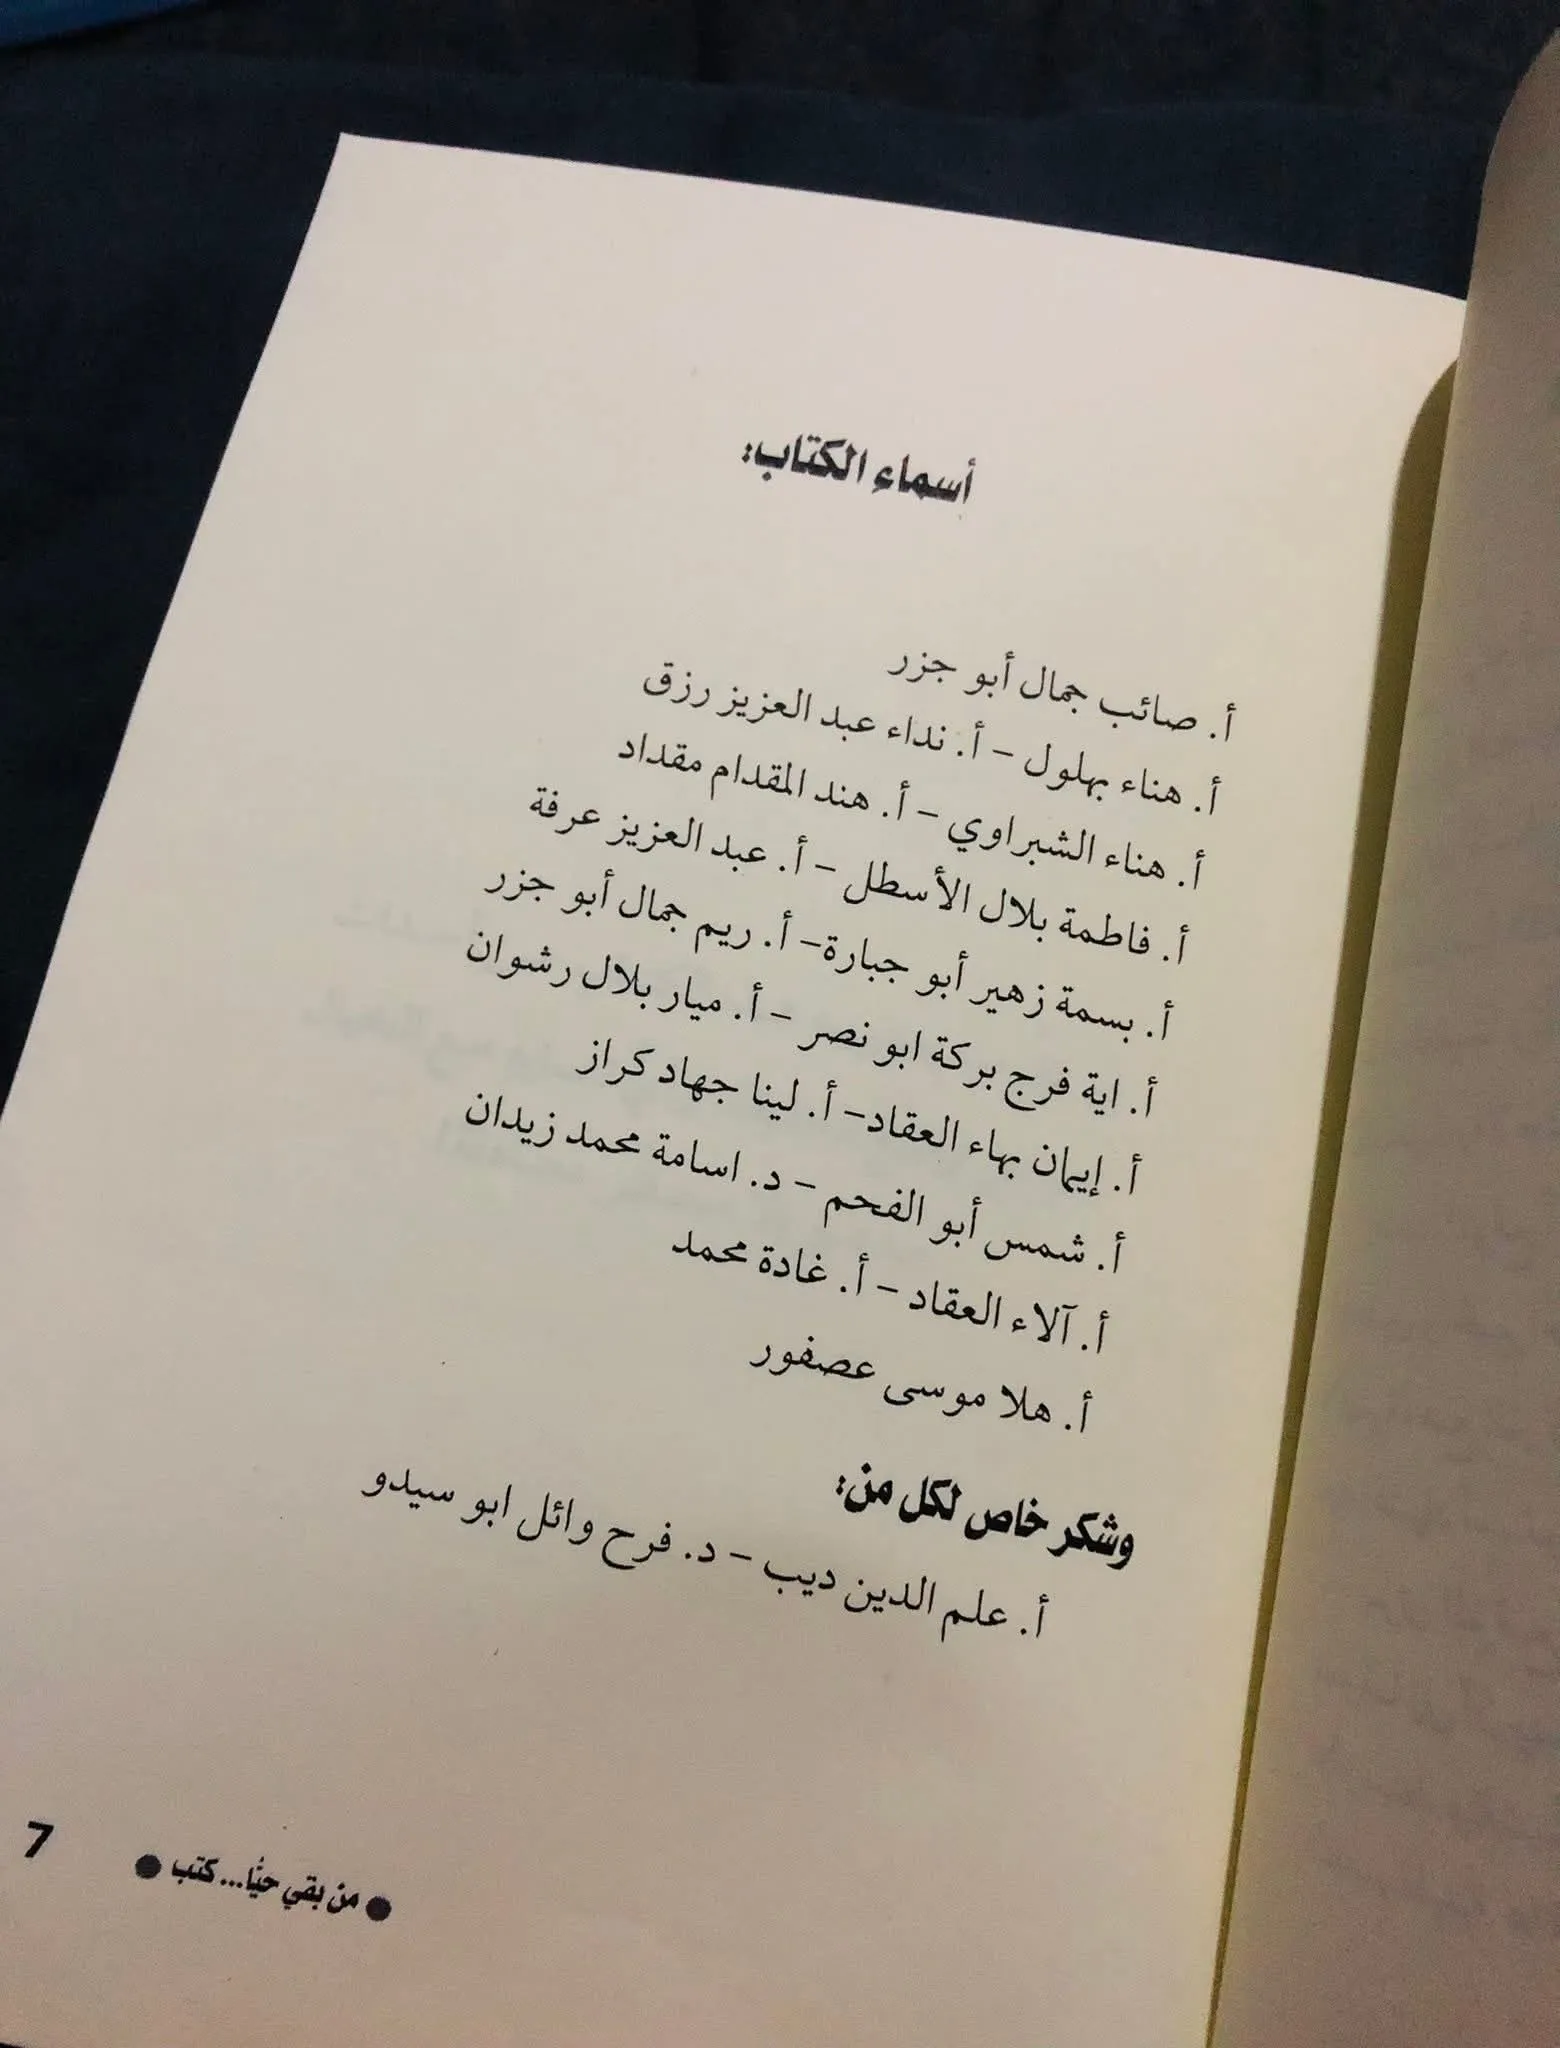 أسماء الكتاب:
أ. صائب جمال أبو جزر
أ. هناء بهلول – أ. نداء عبد العزيز رزق
أ. هناء الشبراوي – أ. هند المقدام مقداد
أ. فاطمة بلال الأسطل – أ. عبد العزيز عرفة
أ. بسمة زهير أبو جبارة– أ. ريم جمال أبو جزر
أ. اية فرج بركة ابو نصر – أ. ميار بلال رشوان
أ. إيمان بهاء العقاد– أ. لينا جهاد كراز
أ. شمس أبو الفحم – د. اسامة محمد زيدان
أ. آلاء العقاد – أ. غادة محمد
أ. هلا موسى عصفور
وشكر خاص لكل من:
أ. علم الدين ديب – د. فرح وائل ابو سيدو
● من بقي حيًّا... كتب ● 7